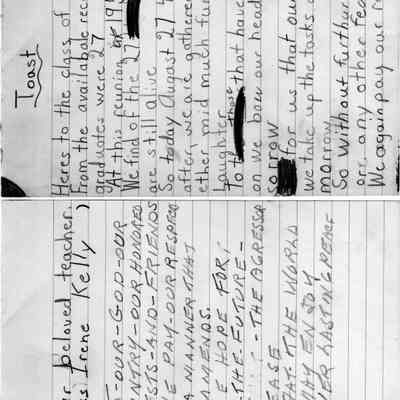 Toast
Heres to the class of
From the available rec
graduates were 27
At this reunion in 19
We find of the 27
are still alive
So today August 27
after, we are gathere
ether mid much fun
laughter
To those that have
on we bow our head
sorrow
for us that our
we take up the tasks
morrow
So without further
or any other
We again pay our r
r beloved teacher.
s Irene Kelly)
OUR-GOD-OUR
NTRY-OUR HONORED
STS-AND-FRIENDS
E PAY-OUR RESPECT
A MANNER THAT
AMENDS.
E HOPE FOR;
THE-FUTURE-
- THE AGRESSOR
EASE
AT THE WORLD
MAY ENJOY
ER LASTING PEACE